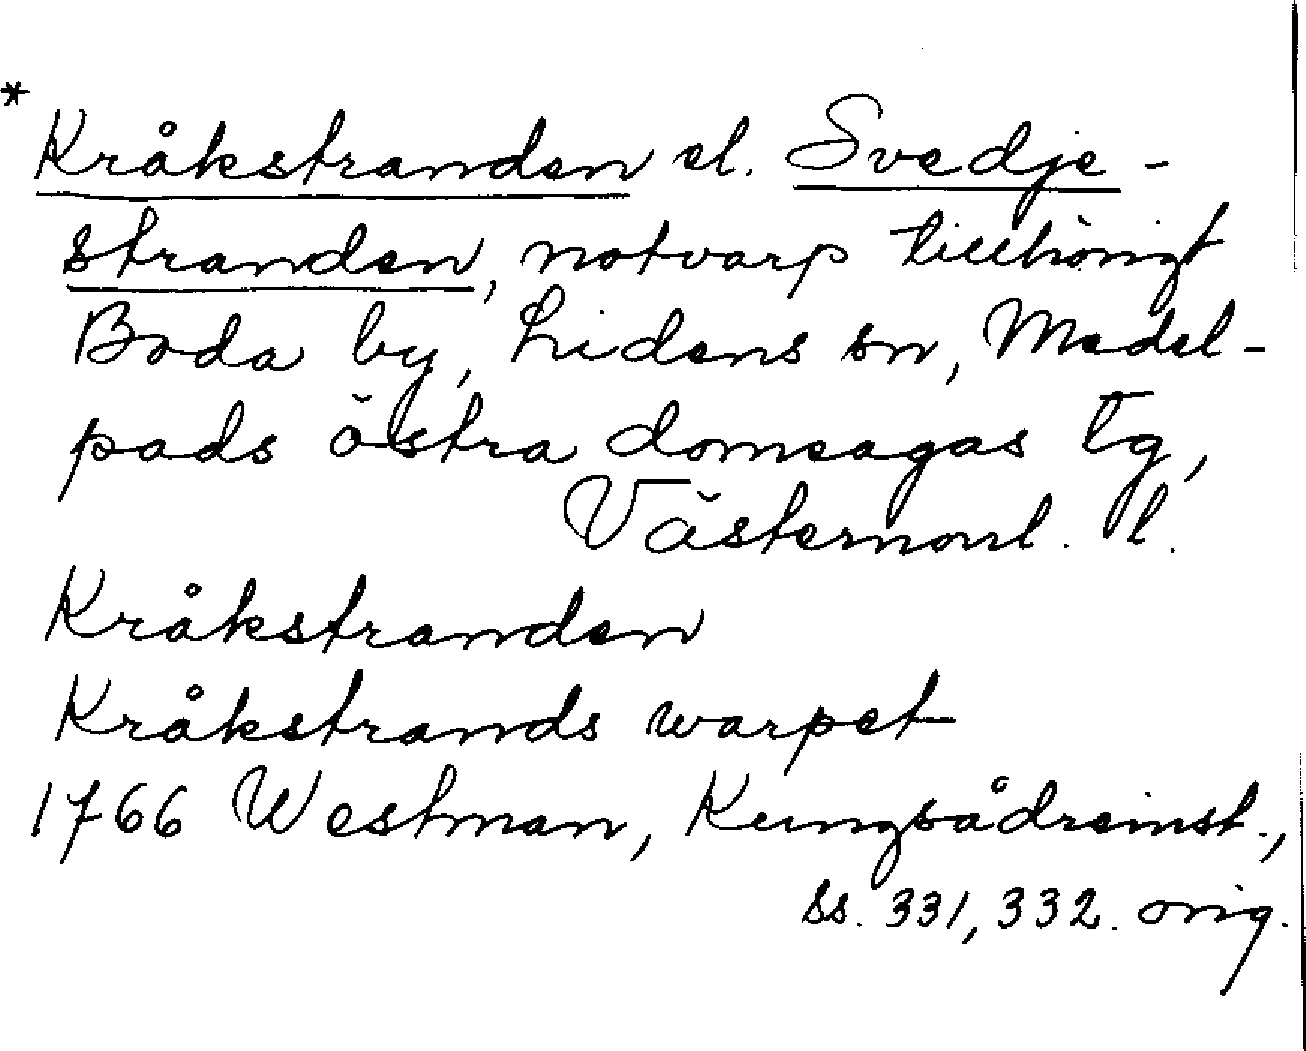 * Kråkstranden el. Svedje-
stranden, notvarp tillhörigt
Boda by, Lidens sn, Medel-
pads östra domsagas tg,
Västernorrl. l.
Kråkstranden
Kråkstrands warpet
1766 Westman, Kungsådreinst.,
ss. 331, 332. orig.